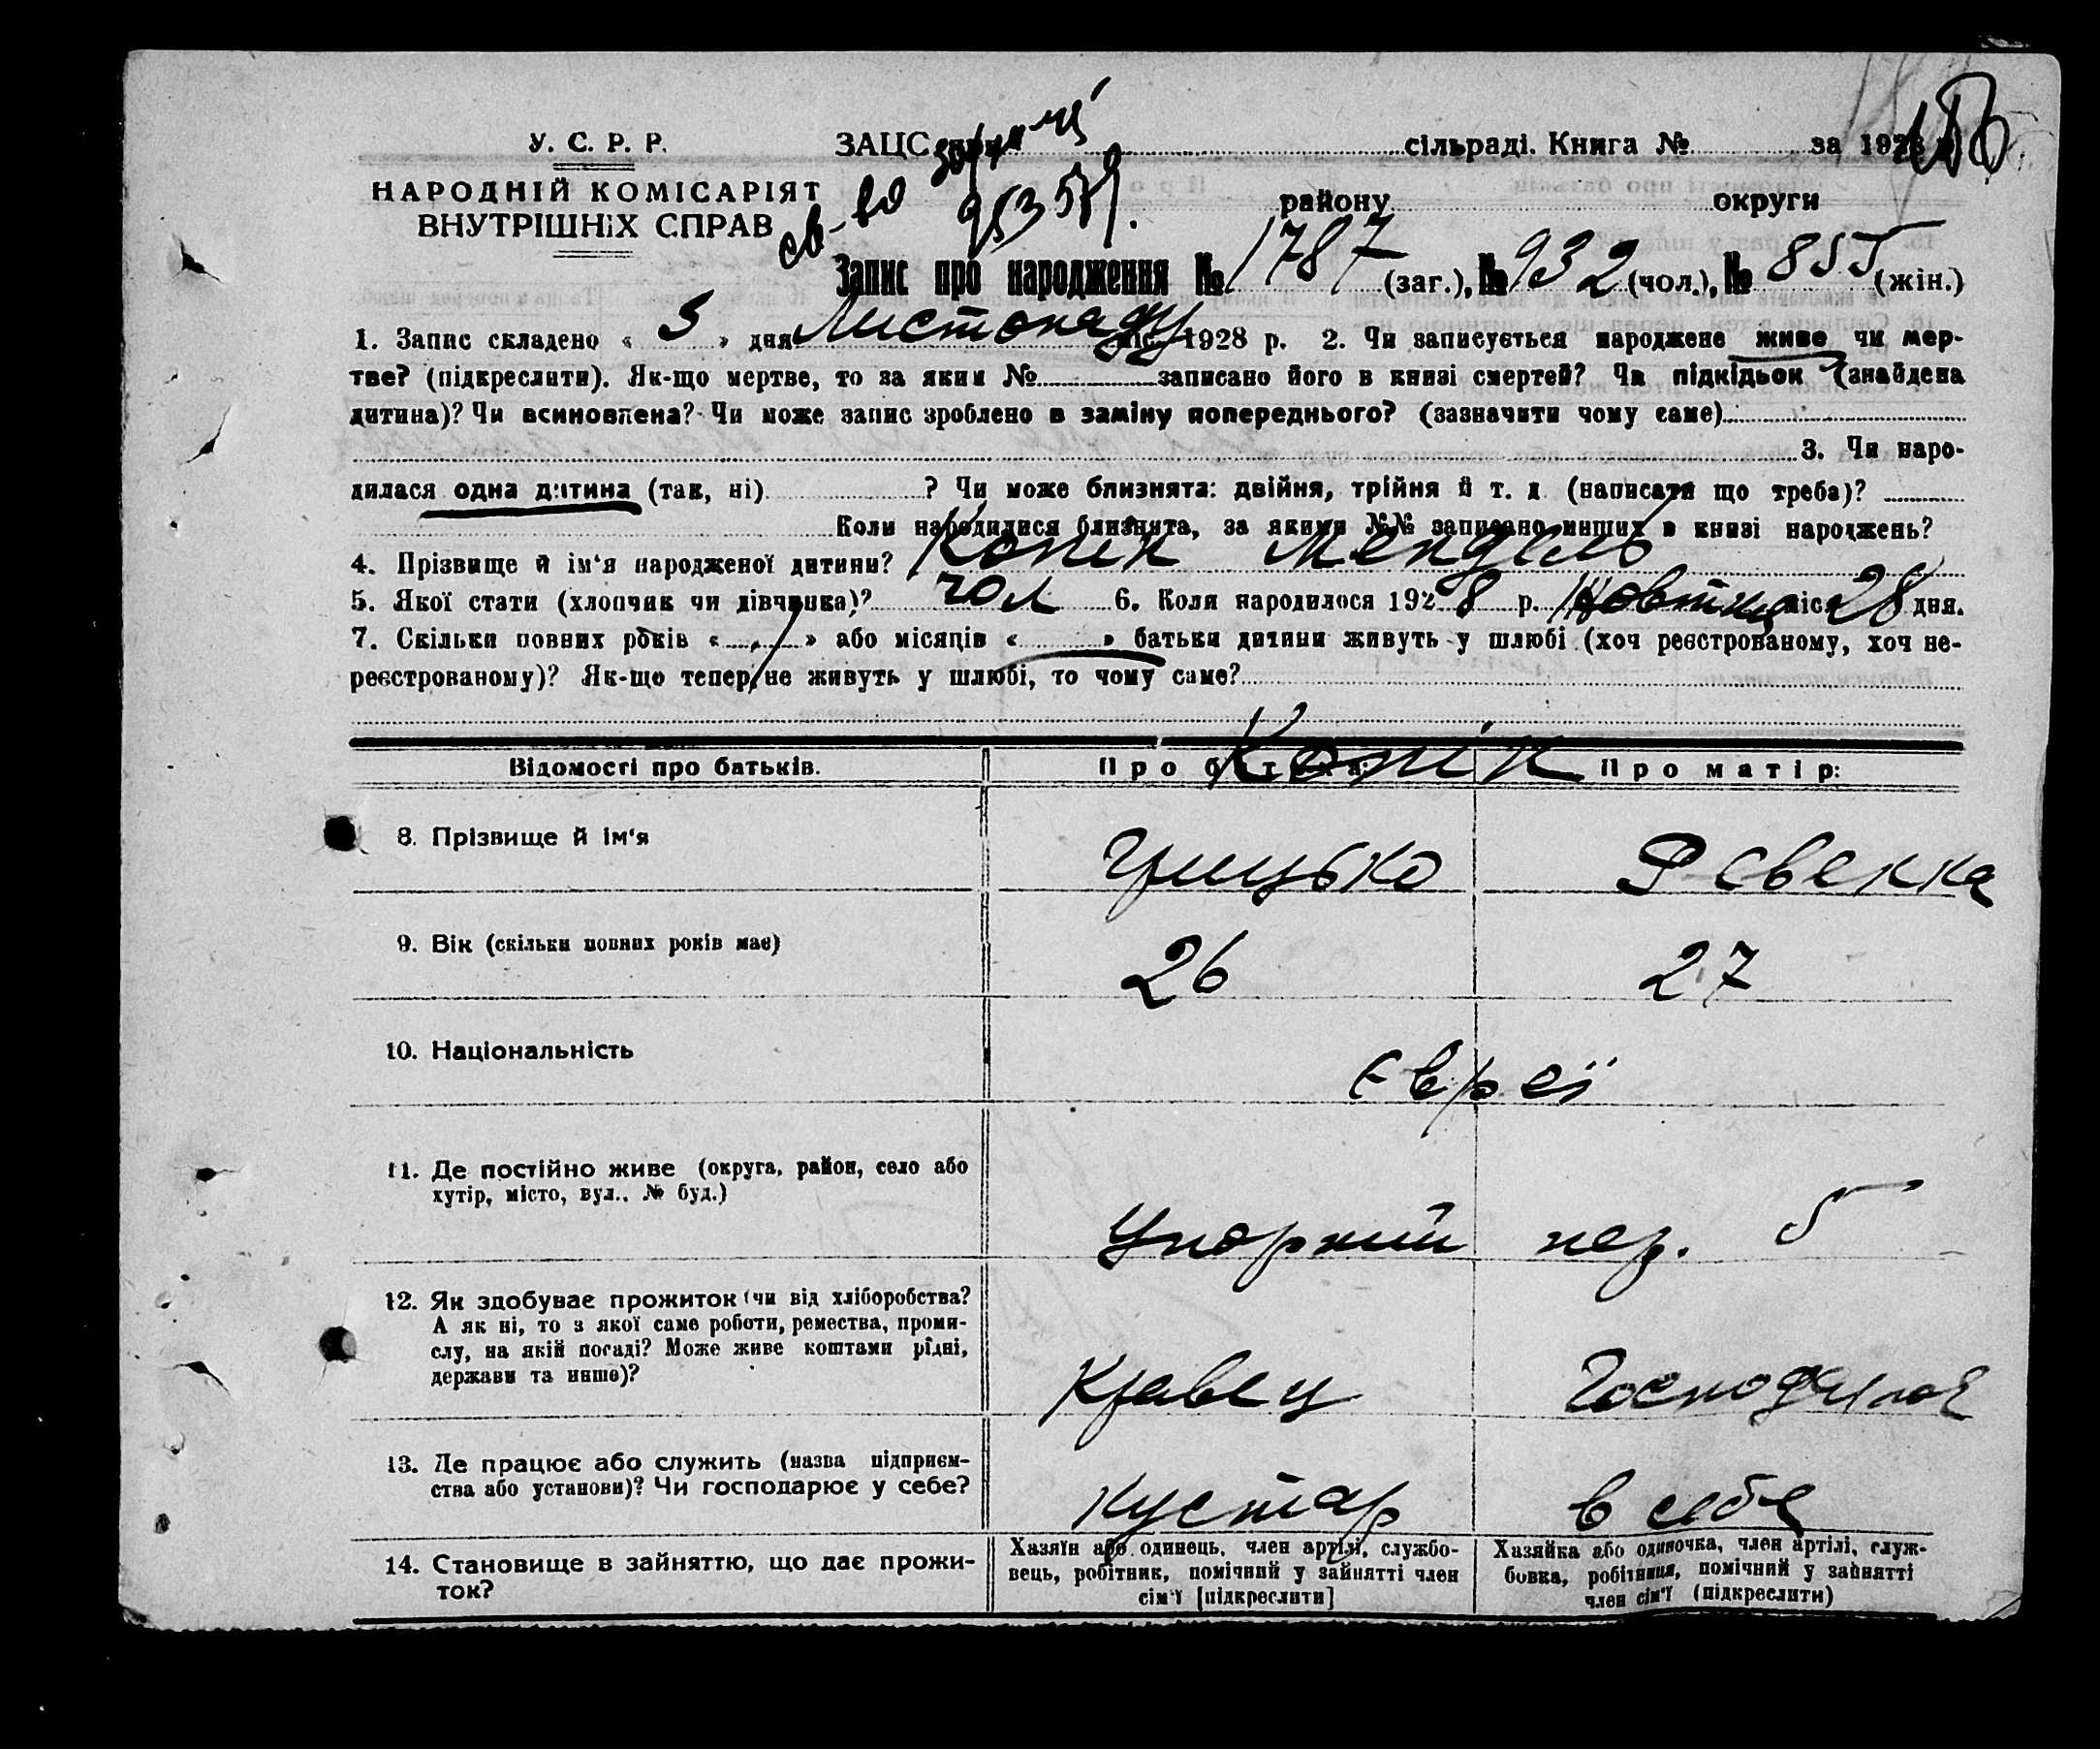 У. С. Р. Р.
НАРОДНІЙ КОМІСАРІЯТ
ВНУТРІШНіХ СПРАВ
ЗАЦС при сільраді. Книга № за 1928
св-во 953581.
району округи
Запис про народження № 1787 (заг.), № 932 (чол.), № 855 (жін.)
1. Запис складено « 5 » дня Листопаду міс. 1928 р. 2. Чи записується народжене живе чи мер-
тве? (підкреслити). Як-що мертве, то за яким № записано його в книзі смертей? Чи підкідьок (знайдена
дитина)? Чи всиновлена? Чи може запис зроблено в заміну попереднього? (зазначити чому саме)
3. Чи наро-
дилася одна дитина (так, ні) ? Чи може близнята: двійня, трійня й т. д (написати що треба)?
Коли народилися близнята, за якими №№ записано инших в книзі народжень?
4. Прізвище й ім'я народженої дитини? Копік Мендель
5. Якої стати (хлопчик чи дівчинка)? чол 6. Коли народилося 1928 р. Жовтня міся 28 дня.
7. Скільки повних років « » або місяців « » батьки дитини живуть у шлюбі (хоч реєстрованому, хоч не-
реєстрованому)? Як-що тепер не живуть у шлюбі, то чому саме?
Копік
Відомості про батьків. Про батька: Про матір:
8. Прізвище й ім'я Грицько Ревекка
9. Вік (скільки повних років має) 26 27
10. Національність Євреї
11. Де постійно живе (округа, район, село або
хутір, місто, вул.. № буд.)
Упорний пер. 5
12. Як здобуває прожиток (чи від хліборобства?
А як ні, то з якої саме роботи, ремества, проми-
слу, на якій посаді? Може живе коштами рідні,
держави та инше)?
Кравець Господиня
13. Де працює або служить (назва підприєм-
ства або установи)? Чи господарює у себе?
Кустар в себе
14. Становище в зайняттю, що дає прожи-
ток?
Хазяїн або одинець, член артілі, службо-
вець, робітник, помічний у зайнятті член
сім'ї [підкреслити]
Хазяйка або одиночка, член артілі, служ-
бовка, робітниця, помічний у зайнятті
член сім'ї (підкреслити)